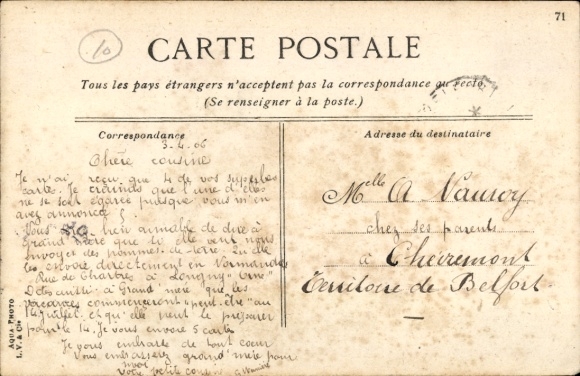 71
10
CARTE POSTALE
Tous les pays étrangers n'acceptent pas la correspondance au recto.
(Se renseigner à la poste.)
Correspondance
Adresse du destinataire
3-4-06
Chère cousine
Je n'ai reçu que 4 de vos superbes
cartes. Je craindς que l'une d'elles
ne se soit égarée puisque vous m'en
avez annoncé 5
Vous bien aimable de dire à
Grand'mère que si elle veut nous
envoyer des pommes de terre
les envoie directement en Normandie
Rue de Chartres à Longny "Orne"
Dites aussi à Grand'mère que les
vacances commenceront "peut-être" au
14 juillet et qu'elle peut se préparer
pour le 14. Je vous envoie 5 cartes
Je vous embrasse de tout cœur
Vous embrasserez grand'mère pour
moi
Votre petite cousine
Melle A Vauroy
chez ses parents
à Chèvremont
Territoire de Belfort
AQUA PHOTO
L.V. & Cie